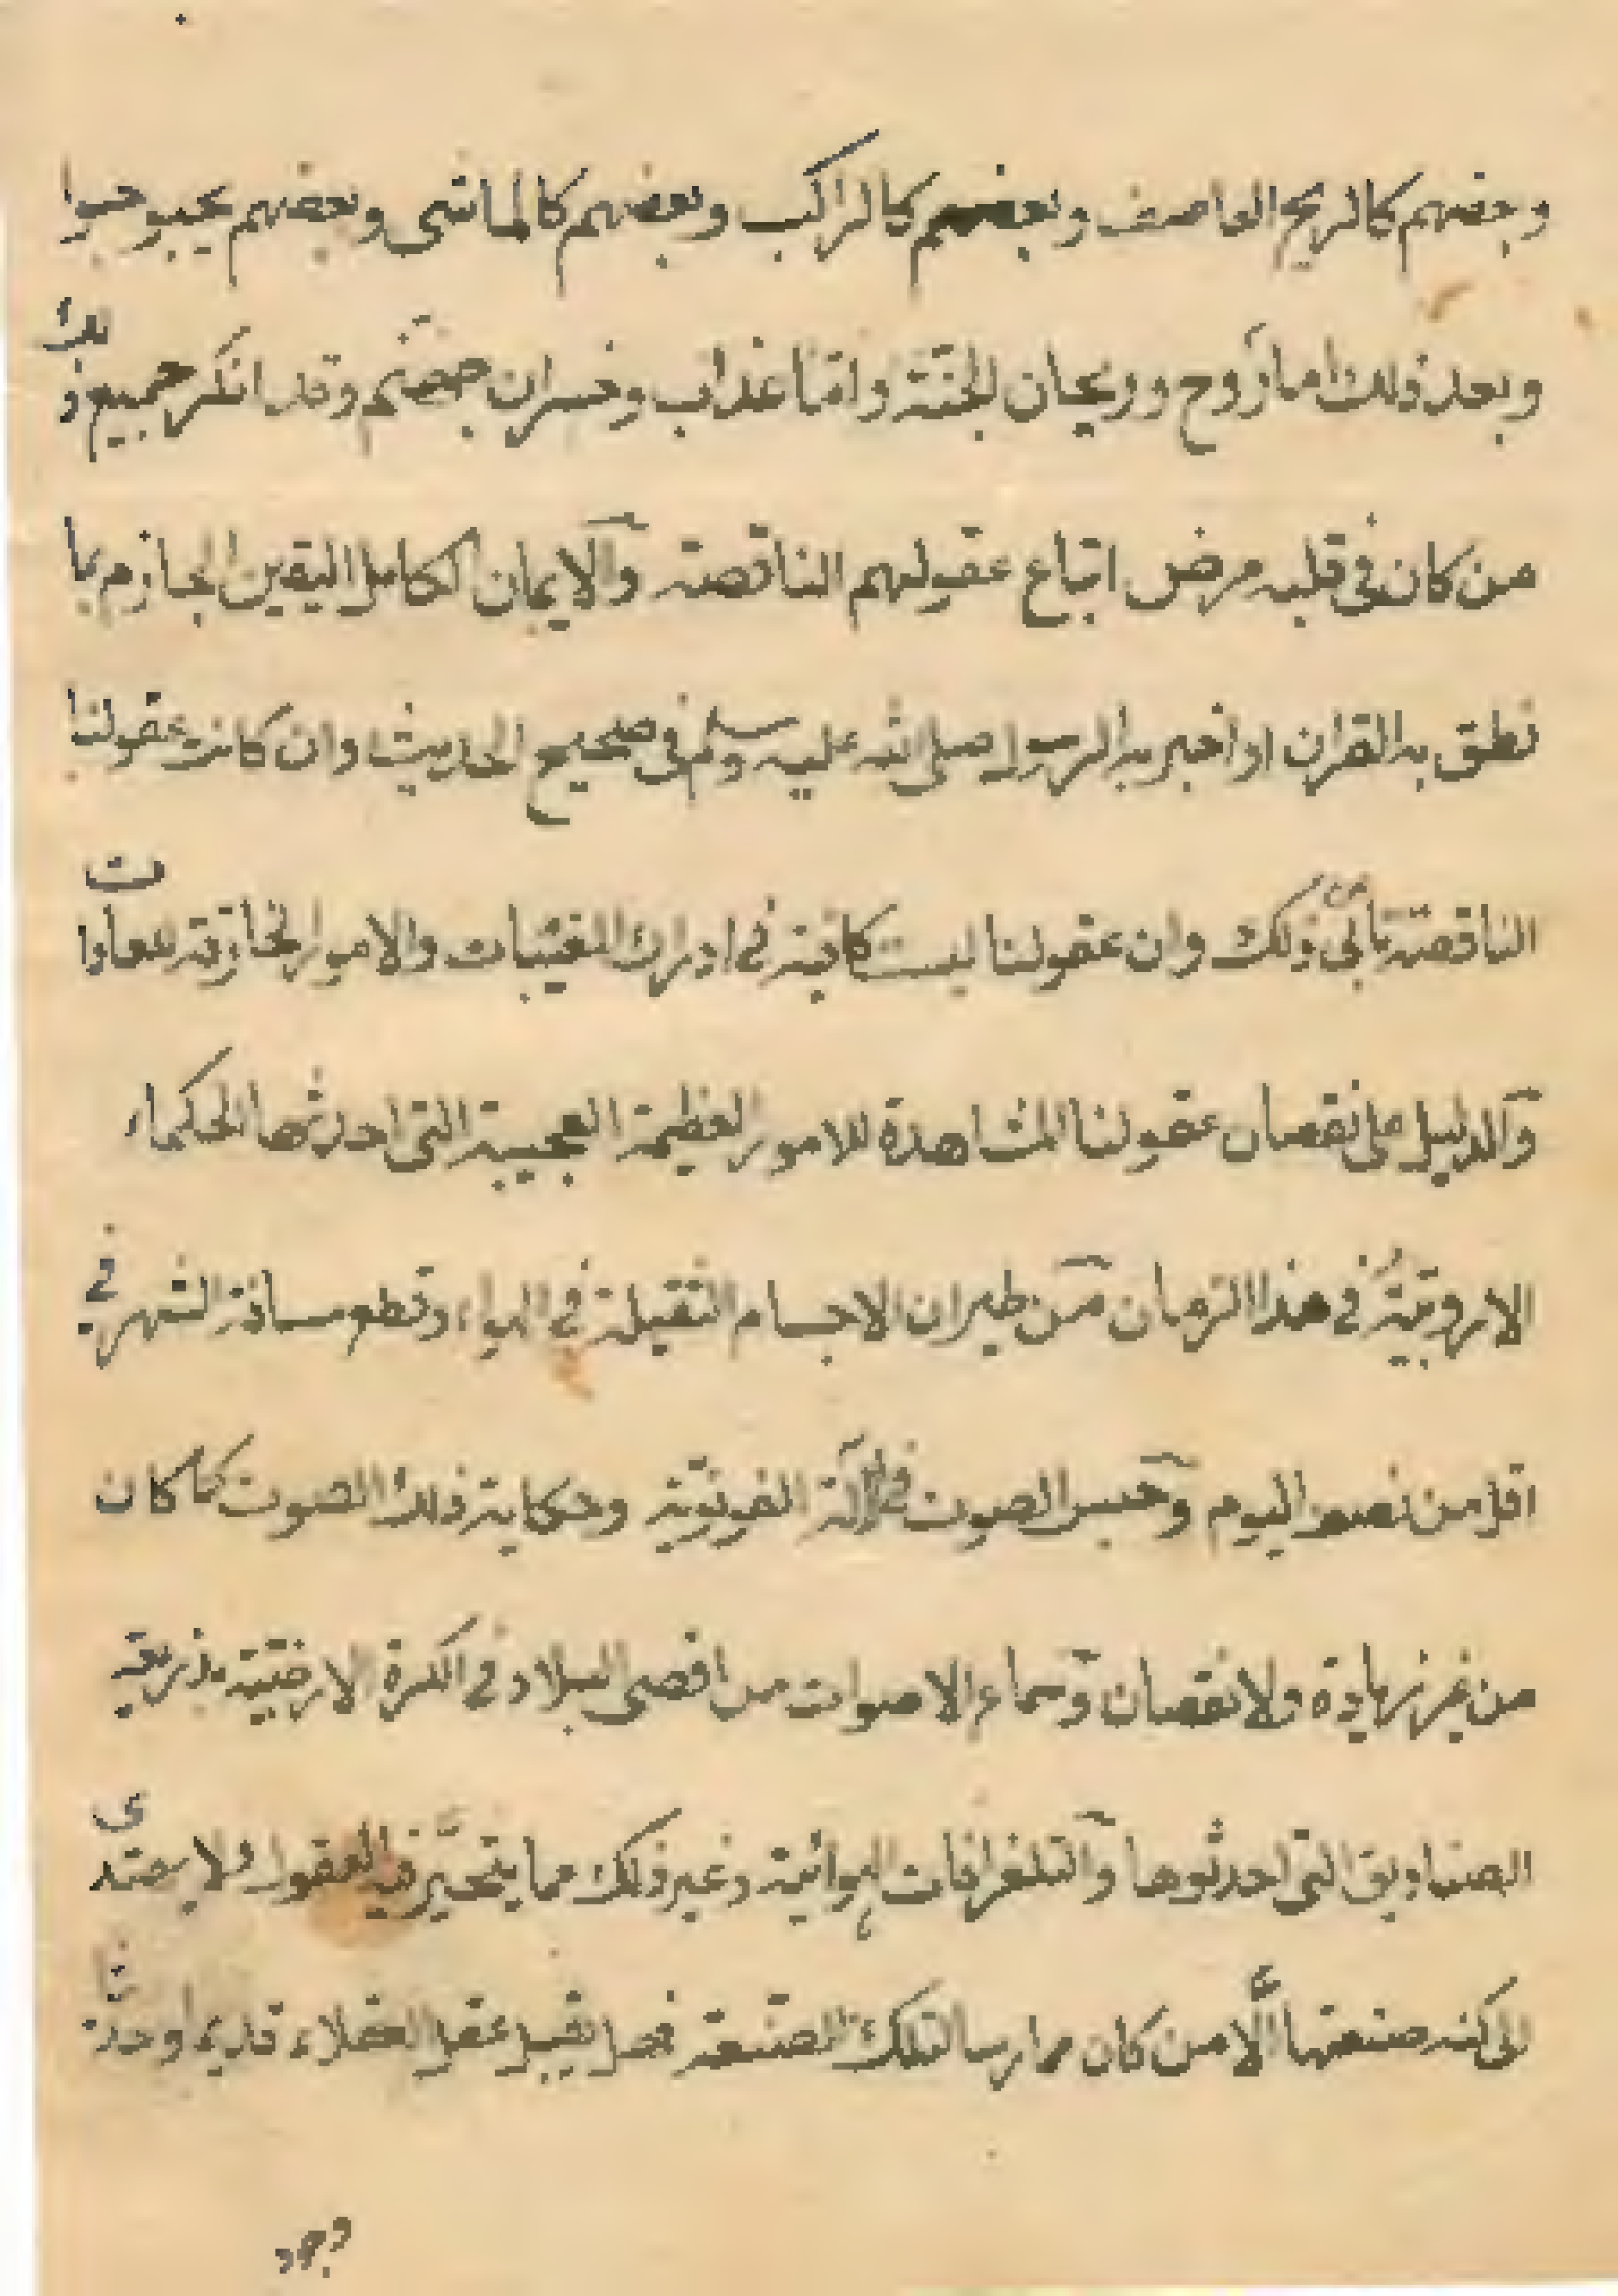 وبعضهم كالريح العاصف وبعضهم كالراكب وبعضهم كالماشى وبعضهم يحبو حبوا
وبعد ذلك اما روح وريحان الجنة واما عذاب وخسران جهنم وقد انكر جميع ذلك
من كان فى قلبه مرض اتباع عقولهم الناقصة والايمان الكامل اليقين الجازم بما
نطق به القران او اخبر به الرسول صلى الله عليه وسلم فى صحيح الحديث وان كانت عقولنا
الناقصة تأبى ذلك وان عقولنا ليست كافية فى ادراك المغيبات والامور الخارقة للعادات
والدليل على نقصان عقولنا المشاهدة للامور العظيمة العجيبة التى احدثها الحكماء
الاروبية فى هذا الزمان من طيران الاجسام الثقيلة فى الهواء وقطع مسافة الشهر فى
اقل من نصف اليوم وحبس الصوت فى الآلة الفونوية وحكاية ذلك الصوت كما كان
من غير زيادة ولا نقصان وسماع الاصوات من اقصى البلاد فى الكرة الارضية بذريعة
الصناديق التى احدثوها والتلغرافات الهوائية وغير ذلك مما يتحير فيه العقول ولا يهتدى
الى كنه صنعتها الا من كان ممارسا لتلك الصنعة فهل يقبل عقل العقلاء قديما وحديثا
وجود